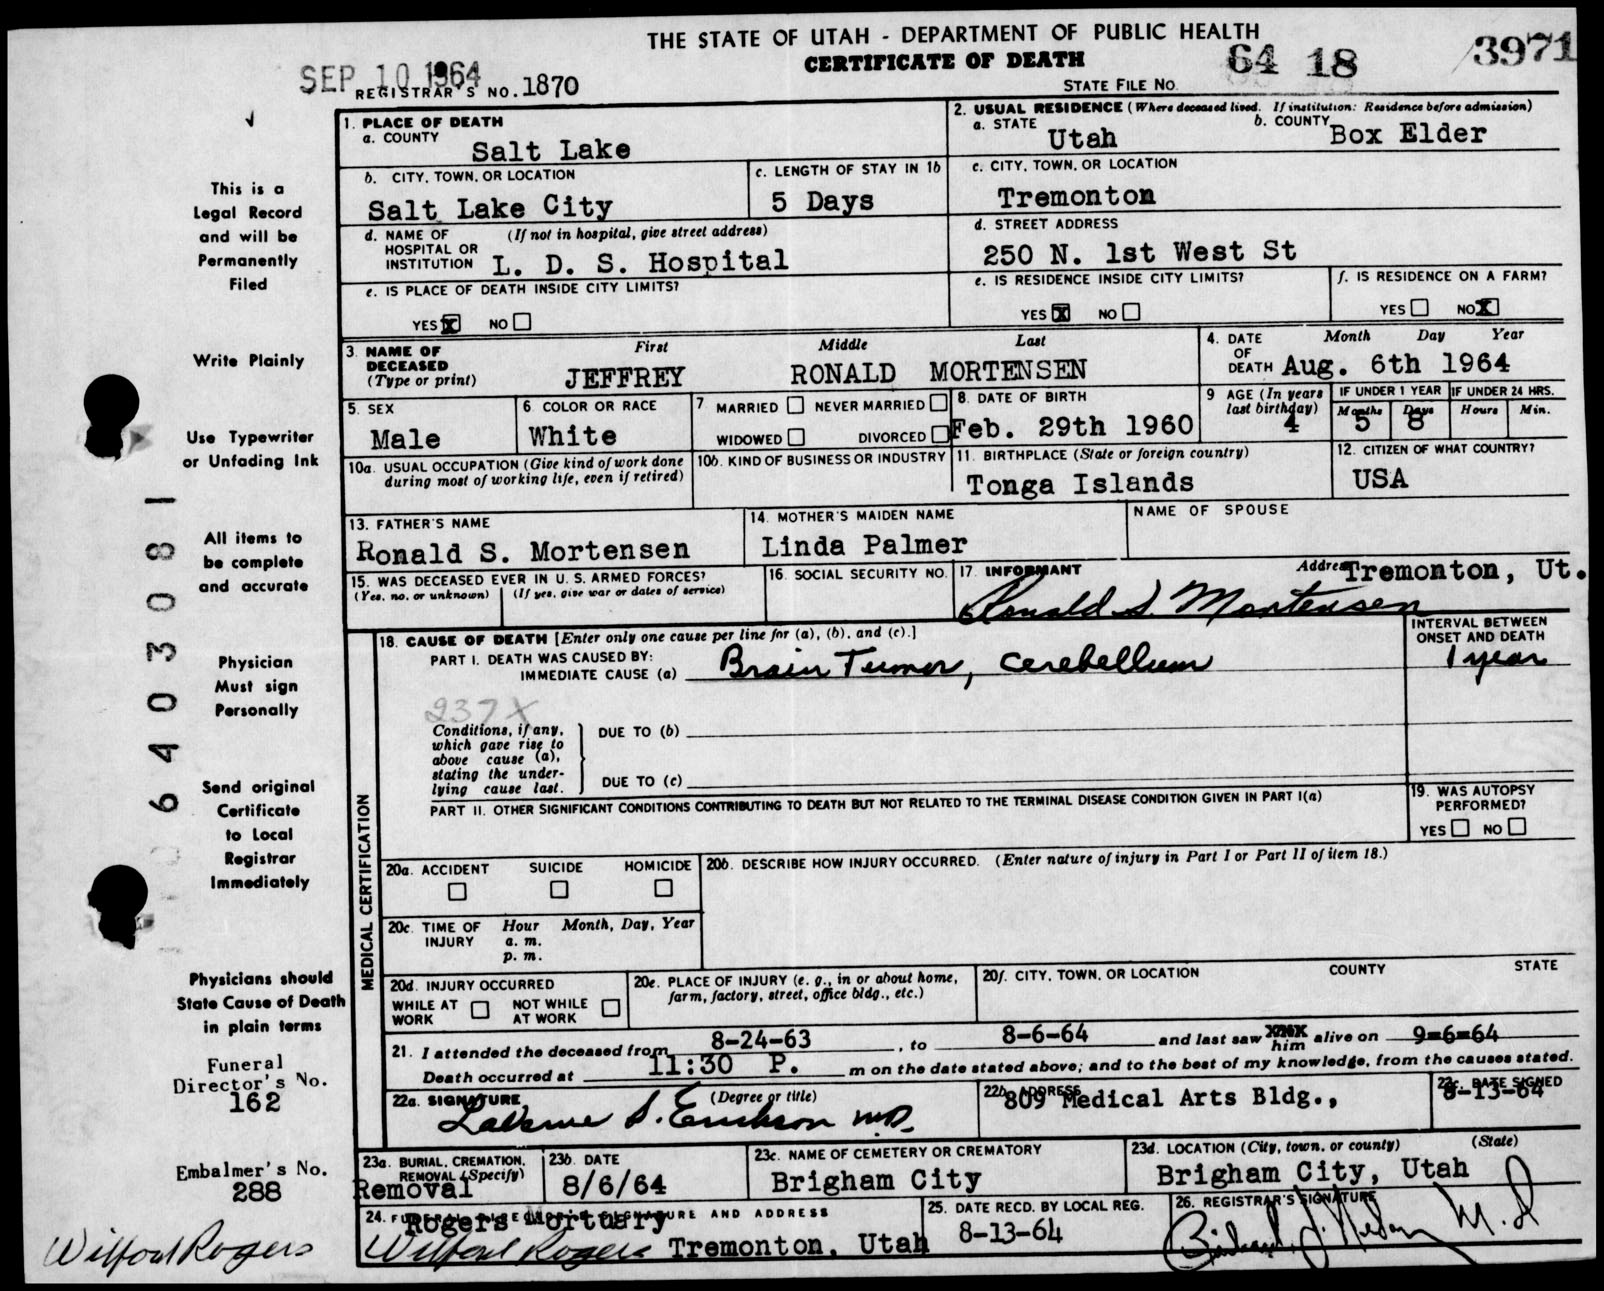 THE STATE OF UTAH - DEPARTMENT OF PUBLIC HEALTH
CERTIFICATE OF DEATH
SEP 10 1964
REGISTRAR'S NO. 1870
STATE FILE NO. 64 18 3971
This is a
Legal Record
and will be
Permanently
Filed
Write Plainly
Use Typewriter
or Unfading Ink
All items to
be complete
and accurate
Physician
Must sign
Personally
Send original
Certificate
to Local
Registrar
Immediately
Physicians should
State Cause of Death
in plain terms
Funeral
Director's No.
162
Embalmer's No.
288
Wilford Rogers
6403081
1. PLACE OF DEATH
a. COUNTY
Salt Lake
2. USUAL RESIDENCE (Where deceased lived. If institution: Residence before admission)
a. STATE Utah
b. COUNTY Box Elder
b. CITY, TOWN, OR LOCATION
Salt Lake City
c. LENGTH OF STAY IN 1b
5 Days
c. CITY, TOWN, OR LOCATION
Tremonton
d. NAME OF HOSPITAL OR INSTITUTION (If not in hospital, give street address)
L. D. S. Hospital
d. STREET ADDRESS
250 N. 1st West St
e. IS PLACE OF DEATH INSIDE CITY LIMITS?
YES X NO
e. IS RESIDENCE INSIDE CITY LIMITS?
YES X NO
f. IS RESIDENCE ON A FARM?
YES NO X
3. NAME OF DECEASED (Type or print)
First Middle Last
JEFFREY RONALD MORTENSEN
4. DATE OF DEATH Month Day Year
Aug. 6th 1964
5. SEX
Male
6. COLOR OR RACE
White
7 MARRIED NEVER MARRIED
WIDOWED DIVORCED
8. DATE OF BIRTH
Feb. 29th 1960
9 AGE (In years last birthday)
4
IF UNDER 1 YEAR IF UNDER 24 HRS.
Months Days Hours Min.
5 8
10a. USUAL OCCUPATION (Give kind of work done during most of working life, even if retired)
10b. KIND OF BUSINESS OR INDUSTRY
11. BIRTHPLACE (State or foreign country)
Tonga Islands
12. CITIZEN OF WHAT COUNTRY?
USA
13. FATHER'S NAME
Ronald S. Mortensen
14. MOTHER'S MAIDEN NAME
Linda Palmer
NAME OF SPOUSE
15. WAS DECEASED EVER IN U. S. ARMED FORCES?
(Yes, no, or unknown) (If yes, give war or dates of service)
16. SOCIAL SECURITY NO.
17. INFORMANT Address Tremonton, Ut.
Ronald S Mortensen
MEDICAL CERTIFICATION
18. CAUSE OF DEATH [Enter only one cause per line for (a), (b), and (c).]
INTERVAL BETWEEN ONSET AND DEATH
PART I. DEATH WAS CAUSED BY:
IMMEDIATE CAUSE (a) Brain Tumor, cerebellum
1 year
237X
Conditions, if any, which gave rise to above cause (a), stating the underlying cause last.
DUE TO (b)
DUE TO (c)
PART II. OTHER SIGNIFICANT CONDITIONS CONTRIBUTING TO DEATH BUT NOT RELATED TO THE TERMINAL DISEASE CONDITION GIVEN IN PART I(a)
19. WAS AUTOPSY PERFORMED?
YES NO
20a. ACCIDENT SUICIDE HOMICIDE
20b. DESCRIBE HOW INJURY OCCURRED. (Enter nature of injury in Part I or Part II of item 18.)
20c. TIME OF INJURY Hour Month, Day, Year
a. m.
p. m.
20d. INJURY OCCURRED
WHILE AT WORK NOT WHILE AT WORK
20e. PLACE OF INJURY (e. g., in or about home, farm, factory, street, office bldg., etc.)
20f. CITY, TOWN, OR LOCATION COUNTY STATE
21. I attended the deceased from 8-24-63, to 8-6-64 and last saw him alive on 9-6-64
Death occurred at 11:30 P. m on the date stated above; and to the best of my knowledge, from the causes stated.
22a. SIGNATURE (Degree or title)
LaVerne S. Erickson MD.
22b. ADDRESS
809 Medical Arts Bldg.,
22c. DATE SIGNED
8-13-64
23a. BURIAL, CREMATION, REMOVAL (Specify)
Removal
23b. DATE
8/6/64
23c. NAME OF CEMETERY OR CREMATORY
Brigham City
23d. LOCATION (City, town, or county) (State)
Brigham City, Utah
24. FUNERAL DIRECTOR'S SIGNATURE AND ADDRESS
Rogers Mortuary
Wilford Rogers Tremonton, Utah
25. DATE RECD. BY LOCAL REG.
8-13-64
26. REGISTRAR'S SIGNATURE
M.D